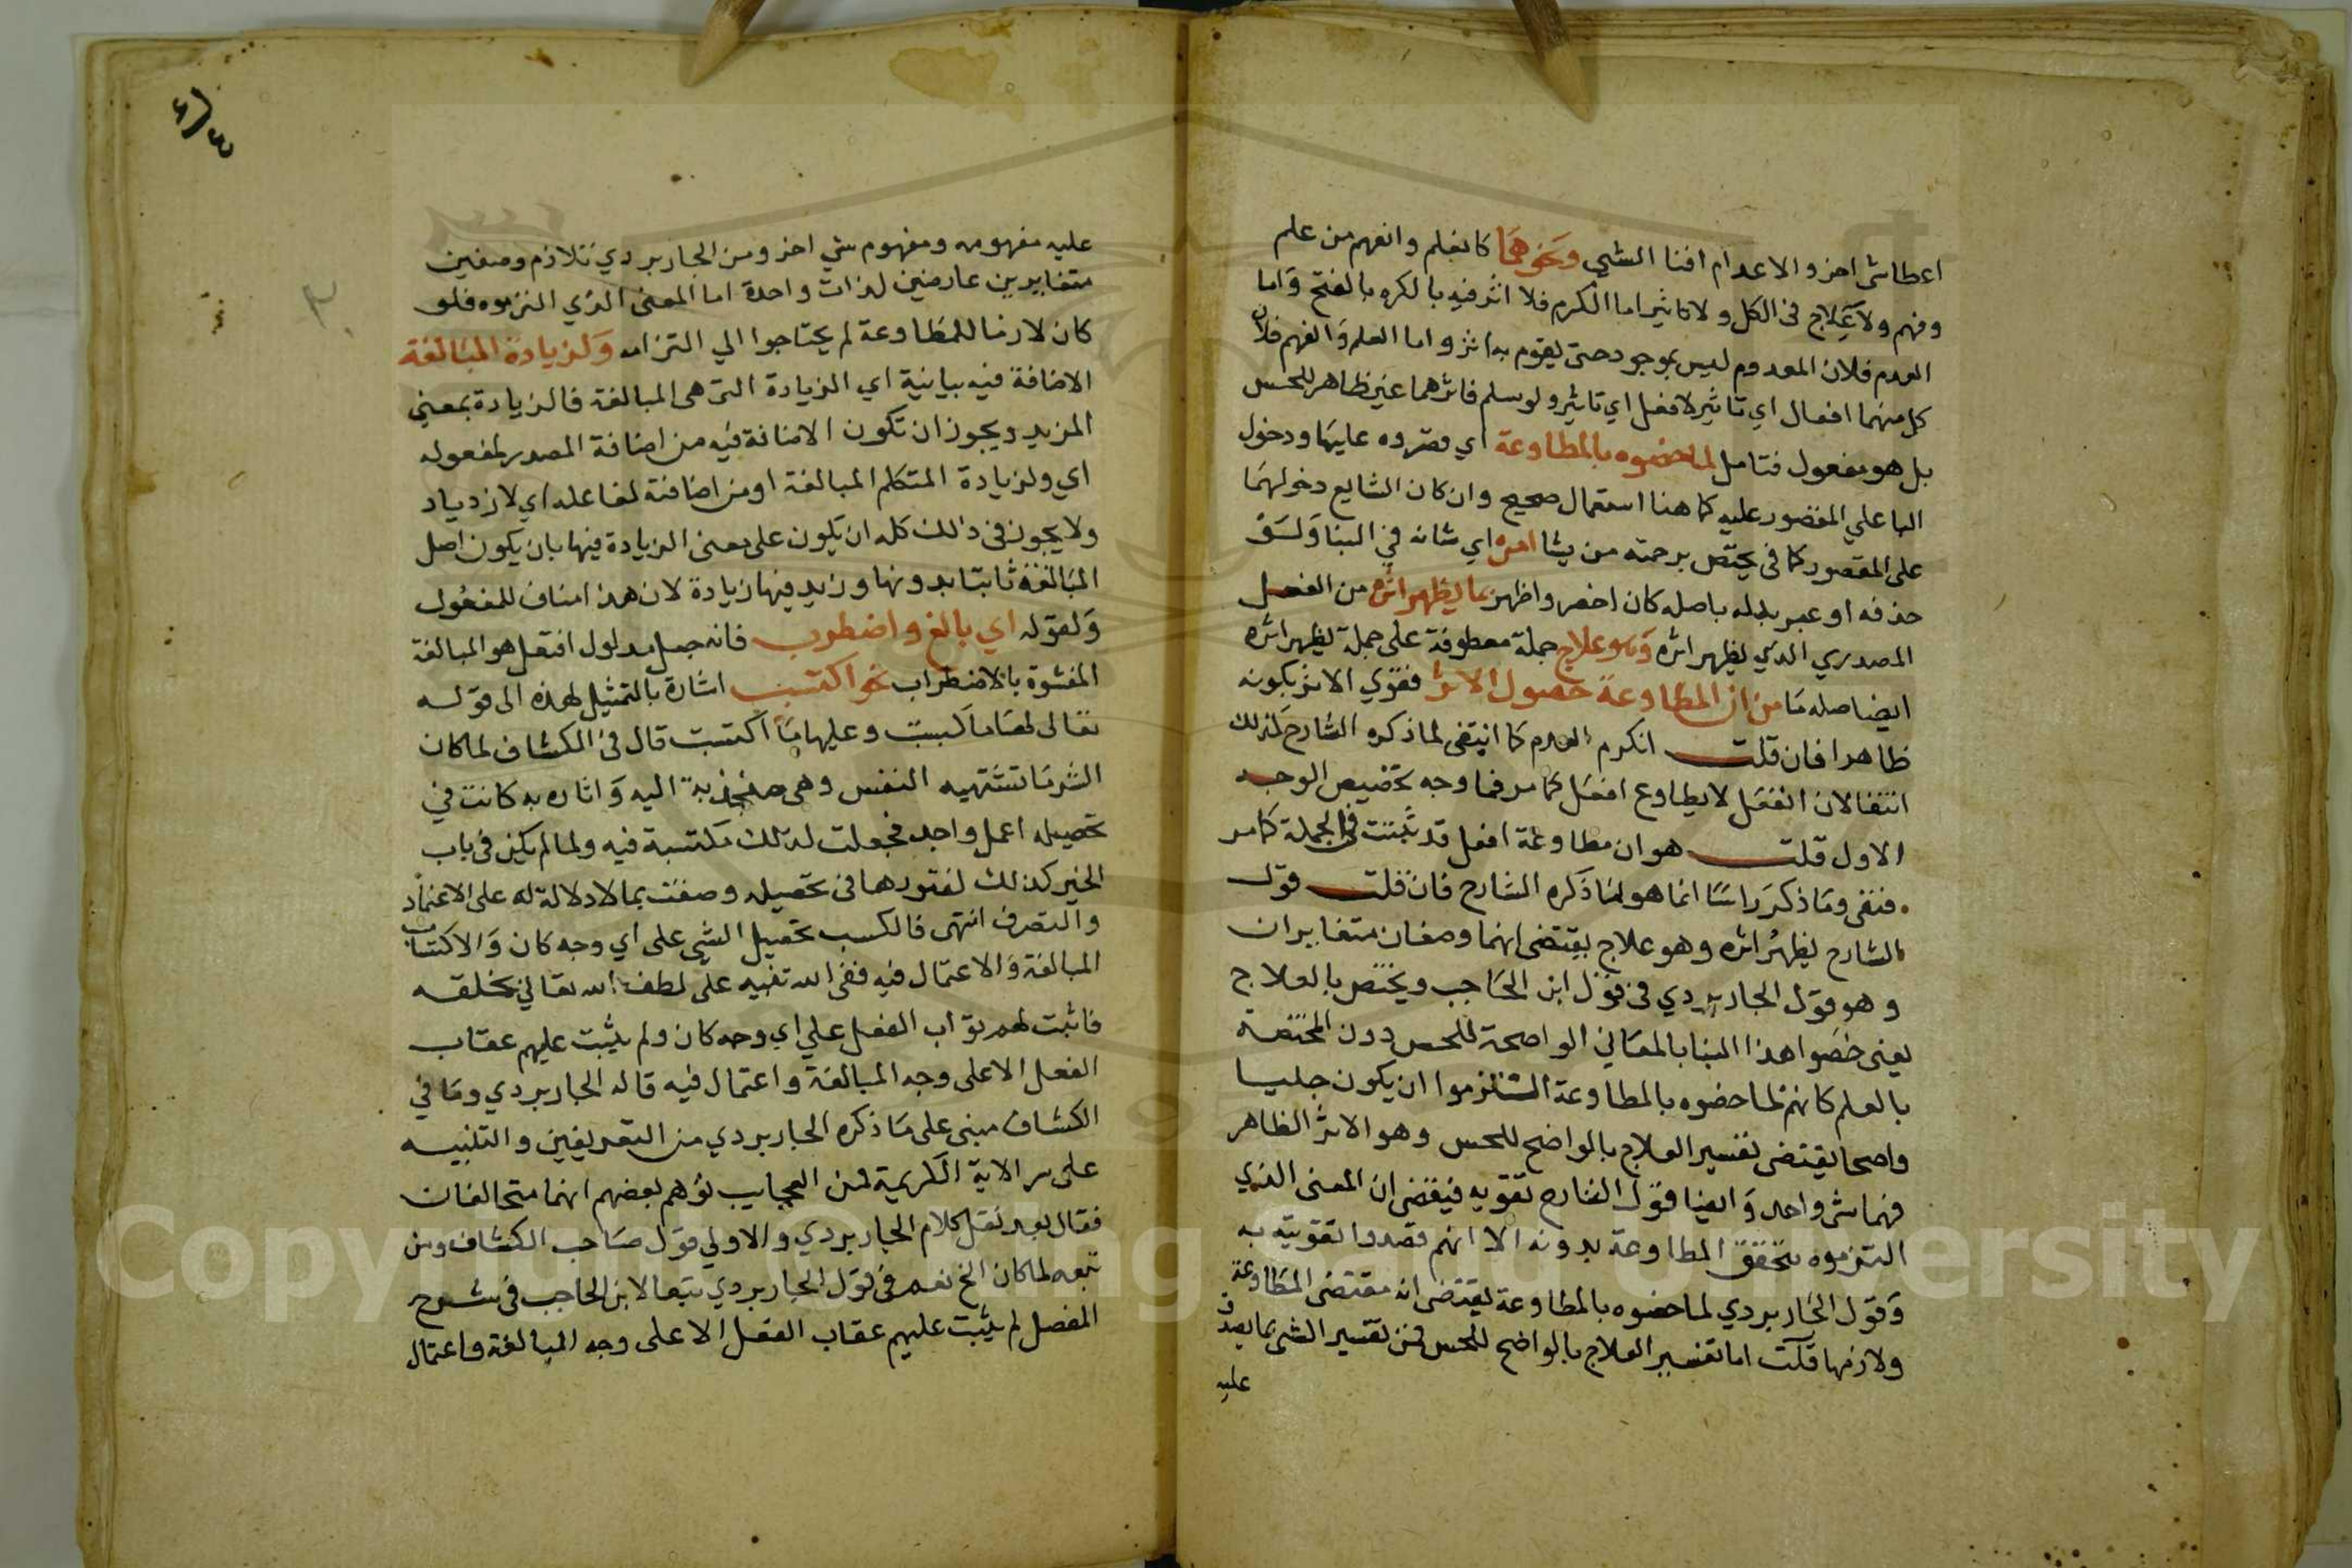 اعطا شى اخر والاعدام افنا الشي ونحوهما كانعلم وانفهم من علم
وفهم ولا علاج فى الكل ولا تاثير اما الكرم فلا اثر فيه بالكره بالفتح واما
العدم فلان المعدوم ليس بموجود حتى يقوم به اثر واما العلم والفهم فلان
كل منهما افعال اي تاثير لا فعل اي تاثير ولو سلم فاثرهما غير ظاهر للحس
بل هو مفعول فتامل لما خصوه بالمطاوعة اي قصروه عليها ودخول
البا علي المقصور عليه كما هنا استعمال صحيح وان كان الشايع دخولها
على المقصور كما فى يختص برحمته من يشا امره اي شانه في البنا ولسق
حذفه او عبر بدله باصله كان اخصر واظهر بما يظهر اثره من الفعل
المصدري الذي يظهر اثره وهو علاج جملة معطوفة على جملة يظهر اثره
ايضا صله ما من ان المطاوعة حصول الاثر فقوي الاثر بكونه
ظاهرا فان قلت انكرم العدم كما انتفى لما ذكره الشارح كذلك
انتفا لان انفعل لا يطاوع افعل كما مر فما وجه تخصيص الوجه
الاول قلت هو ان مطاوعة افعل قد ثبتت فى الجملة كما مر
فنفى وما ذكر راسا انما هو لما ذكره الشارح فان قلت قول
الشارح يظهر اثره وهو علاج يقتضى انهما وصفان متغايران
وهو قول الجاربردي فى قول ابن الحاجب ويختص بالعلاج
يعنى خصوا هذا البنا بالمعاني الواضحة للحس دون المختصة
بالعلم كانهم لما خصوه بالمطاوعة التزموا ان يكون جليا
واضحا يقتضى تفسير العلاج بالواضح للحس وهو الاثر الظاهر
فهما شى واحد وايضا قول الشارح تقويه فيقضى ان المعنى الذي
التزموه تتحقق المطاوعة بدونه الا انهم قصدوا تقويته به
وقول الجاربردي لما خصوه بالمطاوعة يقتضى انه مقتضى المطاوعة
ولازمها قلت اما تفسير العلاج بالواضح للحس فمن تفسير الشى بما يصدق
عليه
عليه مفهومه ومفهوم شي اخر ومن الجاربردي تلازم وصفين
متغايرين عارضين لذات واحدة اما المعنى الذي التزموه فلو
كان لازما للمطاوعة لم يحتاجوا الي التزامه ولزيادة المبالغة
الاضافة فيه بيانية اي الزيادة التى هى المبالغة فالزيادة بمعني
المزيد ويجوز ان تكون الاضافة فيه من اضافة المصدر لمفعوله
اي ولزيادة المتكلم المبالغة او من اضافته لفاعله اي لازدياد
ولا يجوز فى ذالك كله ان يكون على معنى الزيادة فيها بان يكون اصل
المبالغة ثابتا بدونها وزيد فيها زيادة لان هذا مناف للمفعول
ولقوله اي بالغ واضطرب فانه جعل مدلول افتعل هو المبالغة
المفسرة بالاضطراب نحو اكتسب اشارة بالتمثيل لهذه الى قوله
تعالى لها ما كسبت وعليها ما اكتسبت قال فى الكشاف لما كان
الشر مما تشتهيه النفس وهى منجذبة اليه واثاره به كانت في
تحصيله اعمل واجد فجعلت لذلك مكتسبة فيه ولما لم يكن فى باب
الخير كذلك لفتورها فى تحصيله وصفت بما لا دلالة له على الاعتماد
والتصرف انتهى فالكسب تحصيل الشي على اي وجه كان والاكتساب
المبالغة والاعتمال فيه ففى الله تنبيه على لطف الله تعالي بخلقه
فاثبت لهم ثواب الفعل علي اي وجه كان ولم يثبت عليهم عقاب
الفعل الا على وجه المبالغة واعتمال فيه قاله الجاربردي وما في
الكشاف مبنى على ما ذكره الجاربردي من التعريفين والتنبيه
على سر الاية الكريمة فمن العجايب توهم بعضهم انهما متخالفان
فقال بعد نقل كلام الجاربردي والاولي قول صاحب الكشاف ومن
تبعه لما كان الخ نعم فى قول الجاربردي تبعا لابن الحاجب فى شرح
المفصل لم يثبت عليهم عقاب الفعل الا على وجه المبالغة واعتمال